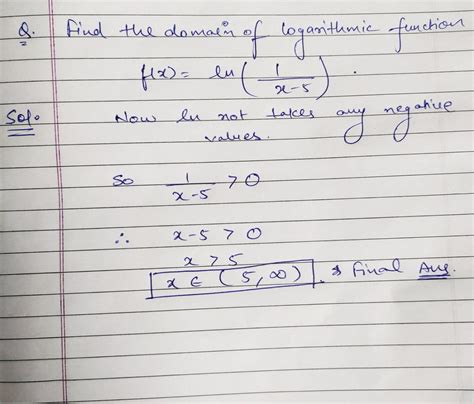 Q. Find the domain of logarithmic function
f(x) = ln ( 1 / x-5 ) .
Sol. Now ln not takes any negative
values.
So 1 / x-5 > 0
∴ x-5 > 0
x > 5
x ∈ (5, ∞) . Final Ans.